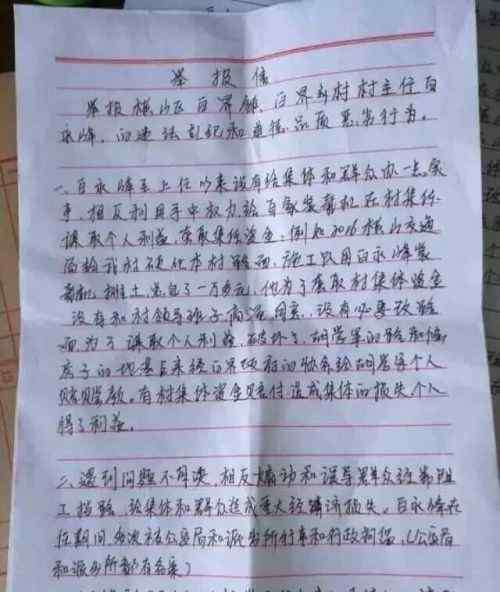 举报信
举报横山区白界镇、白界乡村村主任白
永峰，的违法乱纪和
一、白永峰至上任以来没有给集体和群众办一点家
事，相反利用手中权力给百家装载机在村集体
谋取个人利益，套取集体资金：例如2016横山交通
局给我村硬化本村路面，施工队用白永峰装
载机，推土，总包了一万多元，他为了套取村集体资金
没有和村领导班子商量同意，没有必要改路
面，为了谋取个人利益，破坏了，胡学军的路和修
房子的地基后来经白界政府的协余给胡学军个人
赔赔 款。有村集体资金赔付造成集体的损失个人
得了利益。
二、遇到问题不解决，相反煽动和误导群众经常阻
工挡路，给集体和群众造成重大经济损失。白永峰在
任期间多次被公安局和派出所行事和行政拘留，（公安局
和派出所都有备案）